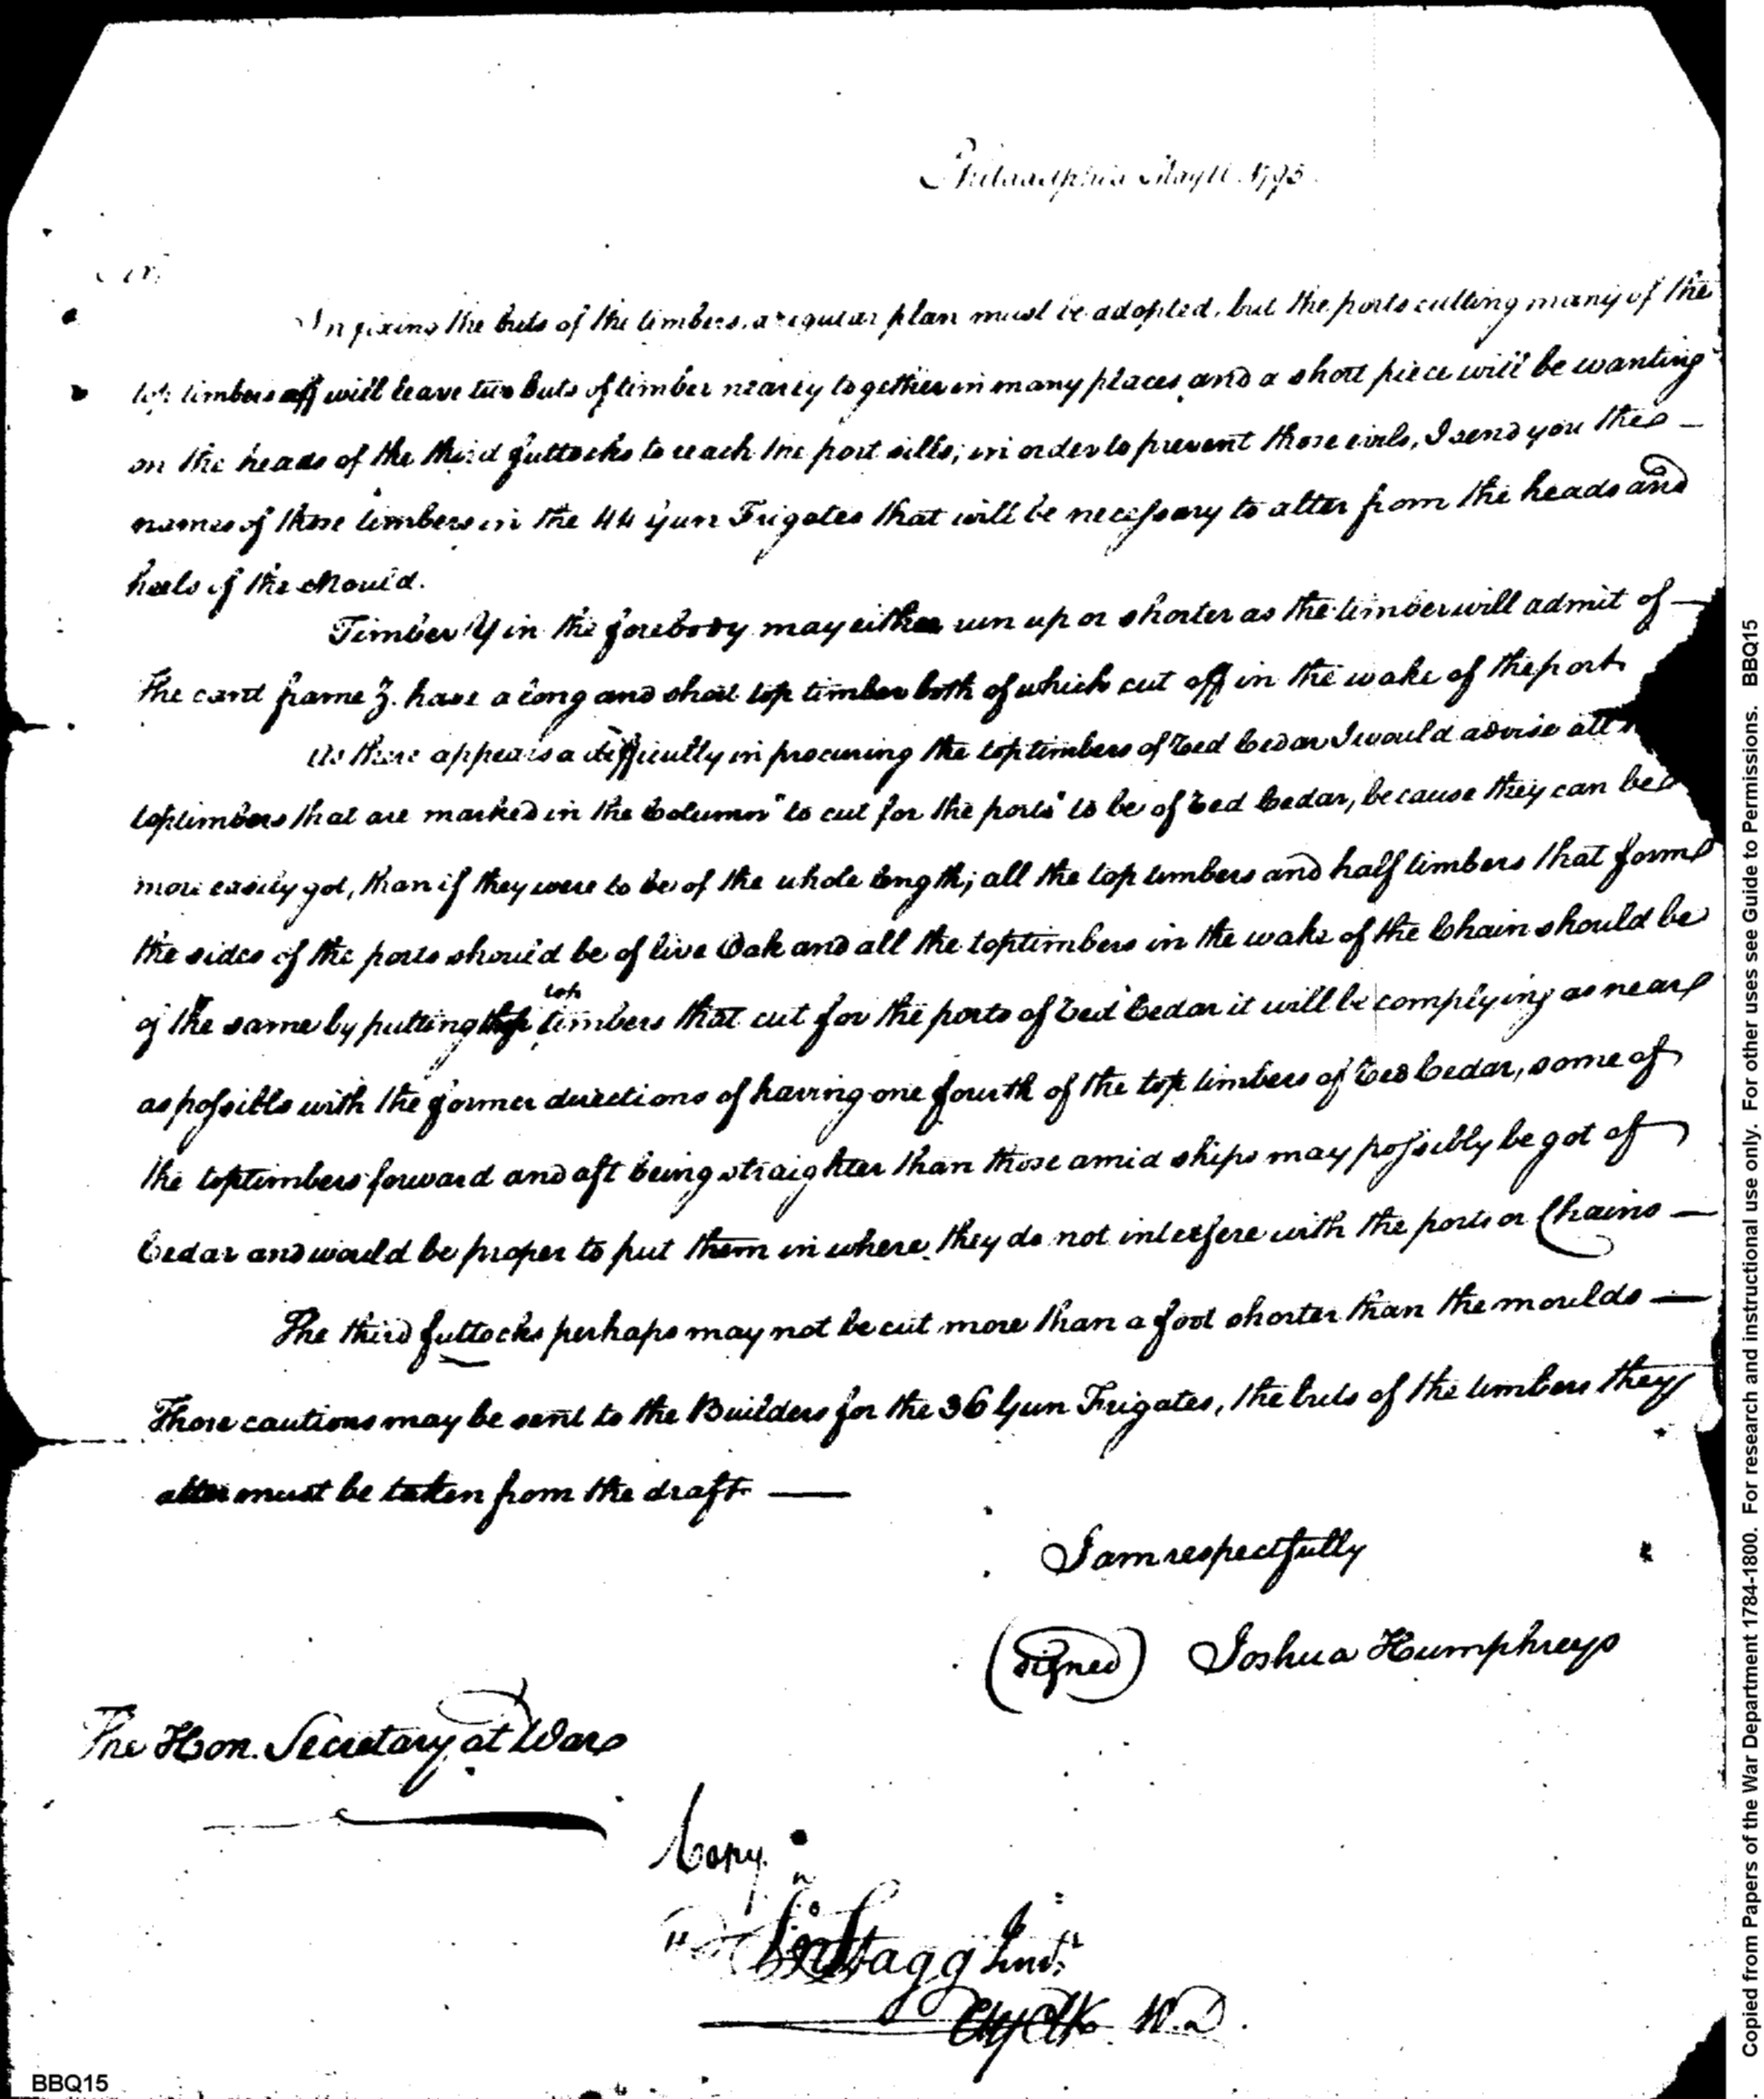 Philadelphia May 11 1795.
Sir,
In fixing the buts of the timbers, a regular plan must be adopted, but the ports cutting many of the
top timbers off will leave two buts of timber nearly together in many places, and a short piece will be wanting
on the heads of the third futtocks to reach the port sills; in order to prevent those evils, I send you the
names of those timbers in the 44 Gun Frigates that will be necessary to alter from the heads and
heels of the Mould.
Timber Y in the forebody may either run up or shorter as the timber will admit of —
The cant frame Z. have a long and short top timber both of which cut off in the wake of the port
As there appears a difficulty in procuring the toptimbers of Red Cedar I would advise all
toptimbers that are marked in the Column "to cut for the ports" to be of Red Cedar, because they can be
more easily got, than if they were to be of the whole length; all the top timbers and half timbers that form
the sides of the ports should be of live Oak and all the toptimbers in the wake of the Chain should be
of the same by putting top timbers that cut for the ports of Red Cedar it will be complying as near
as possible with the former directions of having one fourth of the top timbers of Red Cedar, some of
the toptimbers forward and aft being straighter than those amid ships may possibly be got of
Cedar and would be proper to put them in where they do not interfere with the ports or Chains —
The third futtocks perhaps may not be cut more than a foot shorter than the moulds —
Those cautions may be sent to the Builders for the 36 Gun Frigates, the buts of the timbers they
alter must be taken from the draft —
I am respectfully
(signed) Joshua Humphreys
The Hon. Secretary at War
Copy.
Jno Stagg Junr.
Chf Clk W.D.
BBQ15
Copied from Papers of the War Department 1784-1800. For research and instructional use only. For other uses see Guide to Permissions. BBQ15